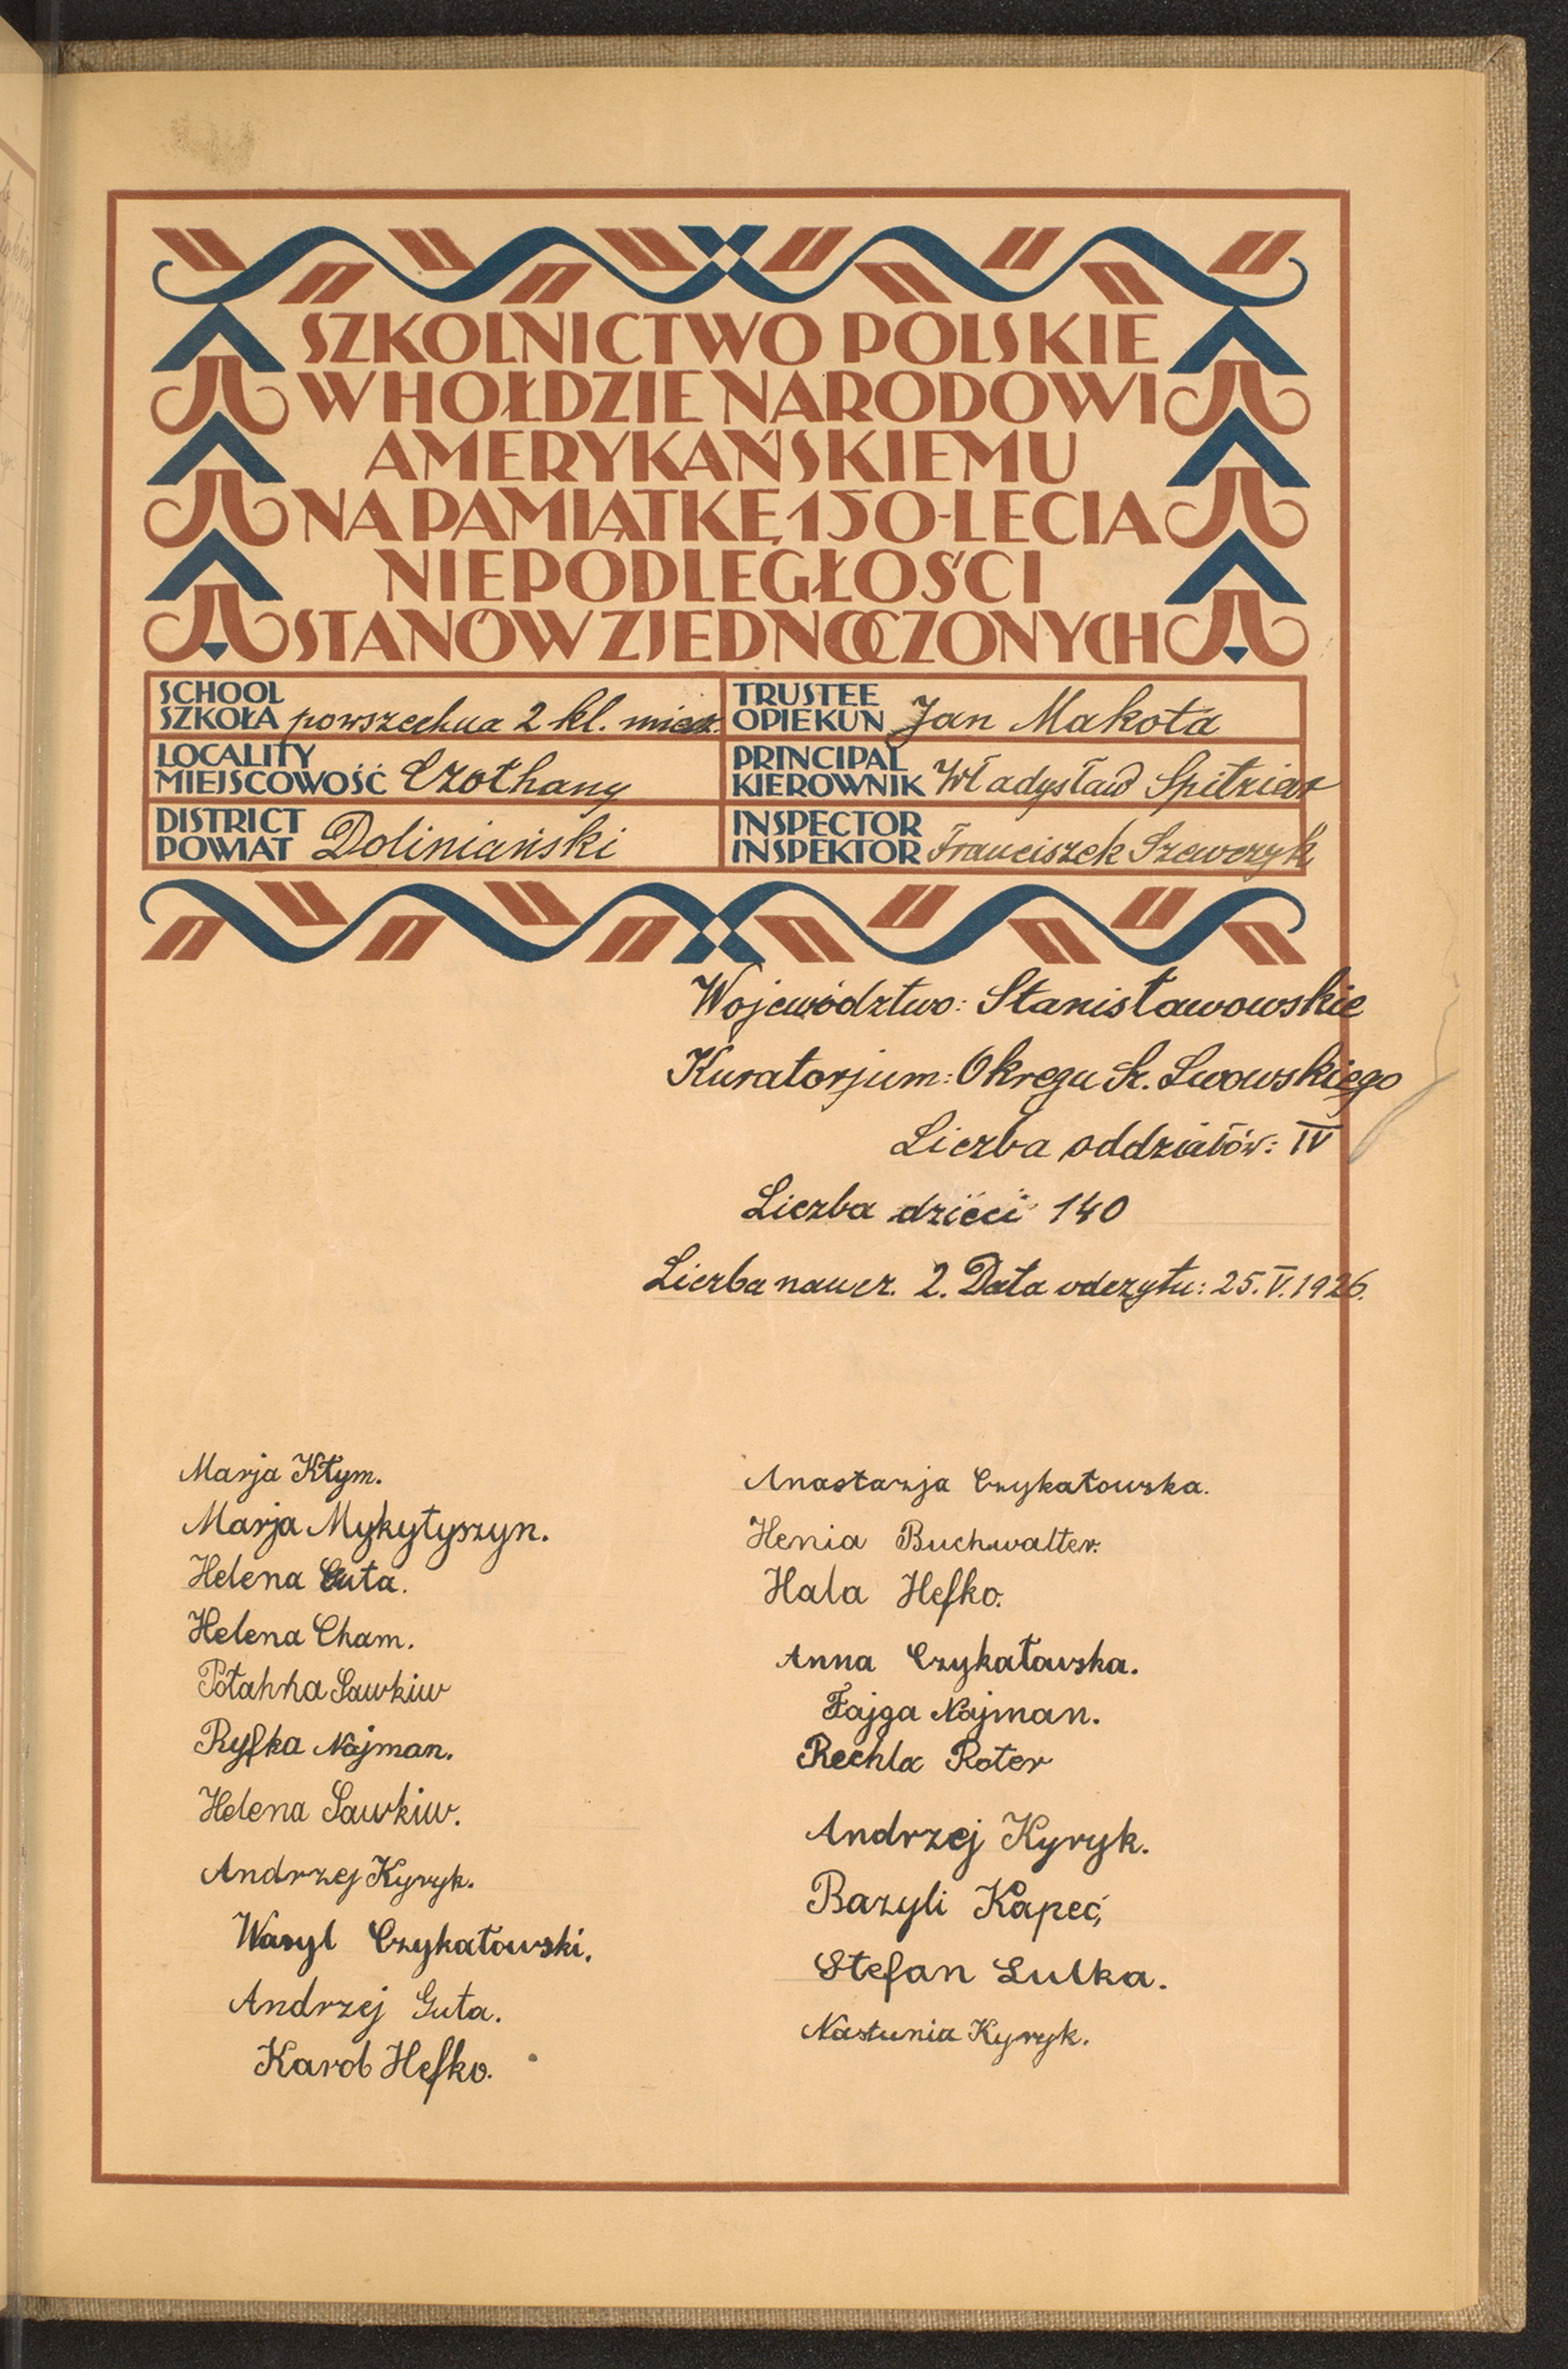 SZKOLNICTWO POLSKIE
W HOŁDZIE NARODOWI
AMERYKAŃSKIEMU
NA PAMIĄTKĘ 150-LECIA
NIEPODLEGŁOŚCI
STANÓW ZJEDNOCZONYCH
SCHOOL
SZKOŁA powszechna 2 kl. miesz.
TRUSTEE
OPIEKUN Jan Makota
LOCALITY
MIEJSCOWOŚĆ Czołhany
PRINCIPAL
KIEROWNIK Władysław
DISTRICT
POWIAT Doliniański
INSPECTOR
INSPEKTOR Franciszek Szewczyk
Województwo: Stanisławowskie
Kuratorjum: Okręgu Sz. Lwowskiego
Liczba oddziałów: IV
Liczba dzieci 140
Liczba naucz. 2. Data odczytu: 25.V.1926.
Marja Kłym.
Marja Mykytyszyn.
Helena Guta.
Helena Cham.
Połahha Sawkiw
Ryfka Najman.
Helena Sawkiw.
Andrzej Kyryk.
Wasyl Czykałowski.
Andrzej Guta.
Karol Hefko.
Anastazja Czykałowska.
Henia Buchwalter.
Hala Hefko.
Anna Czykałowska.
Fajga Najman.
Rechla Roter
Andrzej Kyryk.
Bazyli Kapeć,
Stefan Lulka.
Nastunia Kyryk.